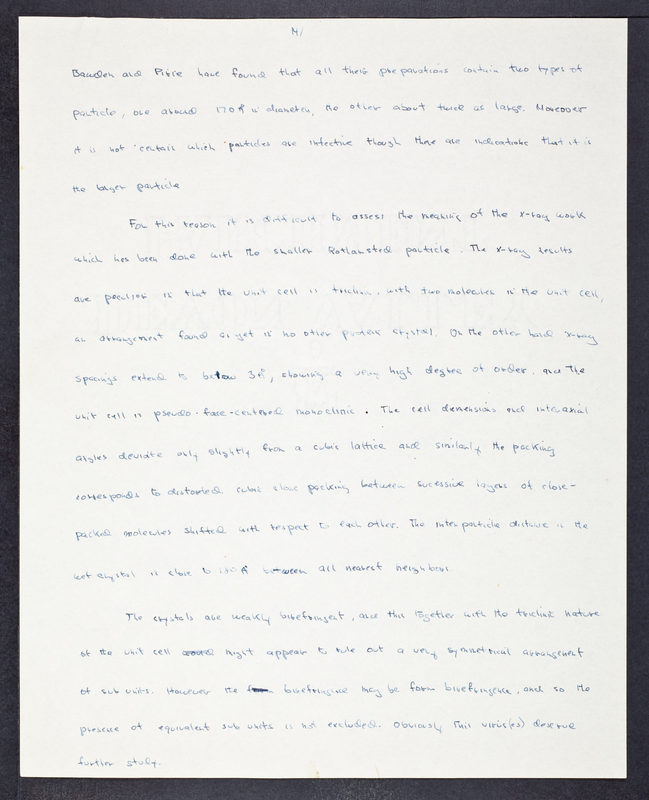 14/
Bawden and Pirie have found that all their preparations contain two types of
particle, one around 170Å in diameter, the other about twice as large. Moreover
it is not certain which particles are infective though there are indications that it is
the larger particle
For this reason it is difficult to assess the meaning of the x-ray work
which has been done with the smaller Rothamsted particle. The x-ray results
are peculiar in that the unit cell is triclinic, with two molecules in the unit cell,
an arrangement found as yet in no other protein crystal. On the other hand x-ray
spacings extend to below 3Å, showing a very high degree of order, and the
unit cell is pseudo-face-centered monoclinic. The cell dimensions and interaxial
angles deviate only slightly from a cubic lattice and similarly the packing
corresponds to distorted cubic close packing between sucessive layers of close-
packed molecules shifted with respect to each other. The interparticle distance in the
wet crystal is close to Å between all nearest neighbors.
The crystals are weakly birefringent, and this together with the triclinic nature
of the unit cell might appear to rule out a very symmetrical arrangement
of sub units. However the birefringence may be form birefringence, and so the
presence of equivalent sub units is not excluded. Obviously this virus(es) deserve
further study.